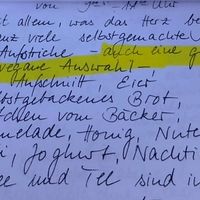 von 9⁰⁰ - 14⁰⁰ Uhr
t allem, was das Herz be
nz viele selbstgemachte
Aufstriche - auch eine g
vegane Auswahl -
Aufschnitt, Eier,
bstgebackenes Brot,
tchen vom Bäcker,
melade, Honig, Nute
i Joghurt, Nachti
ee und Tee sind in